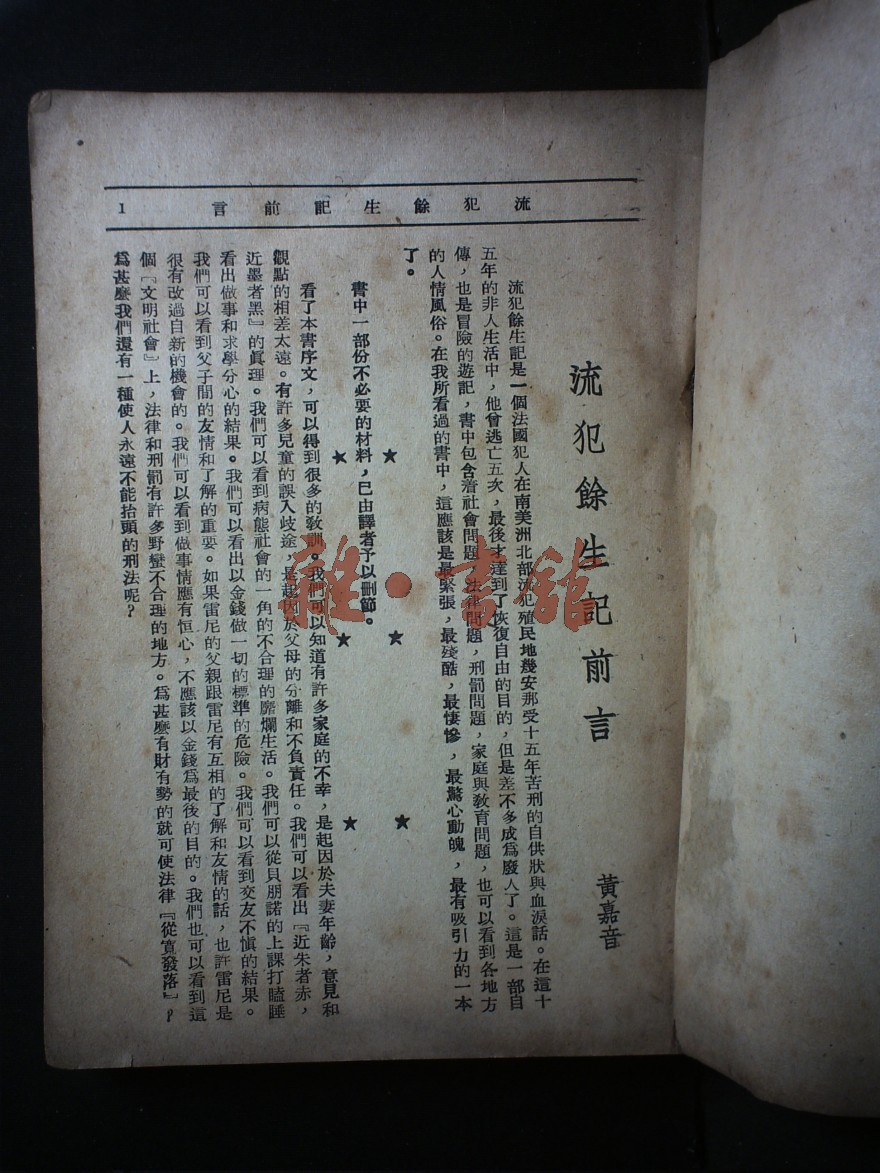 流犯餘生記前言 1
流犯餘生記前言
黃嘉音
流犯餘生記是一個法國犯人在南美洲北部流犯殖民地幾安那受十五年苦刑的自供狀與血淚話。在這十
五年的非人生活中，他曾逃亡五次，最後才達到了恢復自由的目的，但是差不多成爲廢人了。這是一部自
傳，也是冒險的遊記，書中包含着社會問題，法律問題，刑罰問題，家庭與教育問題，也可以看到各地方
的人情風俗。在我所看過的書中，這應該是最緊張，最殘酷，最悽慘，最驚心動魄，最有吸引力的一本
了。
★ ★ ★
書中一部份不必要的材料，已由譯者予以刪節。
★ ★ ★
看了本書序文，可以得到很多的教訓。我們可以知道有許多家庭的不幸，是起因於夫妻年齡，意見和
觀點的相差太遠。有許多兒童的誤入歧途，是起因於父母的分離和不負責任。我們可以看出『近朱者赤，
近墨者黑』的眞理。我們可以看到病態社會的一角的不合理的靡爛生活。我們可以從貝朋諾的上課打瞌睡
看出做事和求學分心的結果。我們可以看出以金錢做一切的標準的危險。我們可以看到交友不愼的結果。
我們可以看到父子間的友情和了解的重要。如果雷尼的父親跟雷尼有互相的了解和友情的話，也許雷尼是
很有改過自新的機會的。我們可以看到做事情應有恒心，不應該以金錢爲最後的目的。我們也可以看到這
個『文明社會』上，法律和刑罰有許多野蠻不合理的地方。爲甚麼有財有勢的就可使法律『從寬發落』？
爲甚麼我們還有一種使人永遠不能抬頭的刑法呢？
雜·書館